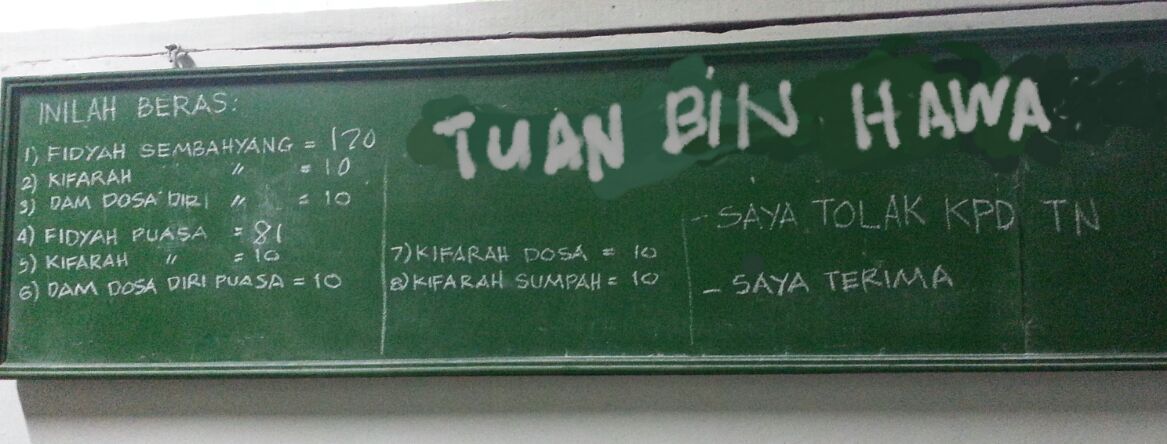 INILAH BERAS:
1) FIDYAH SEMBAHYANG = 120
2) KIFARAH " = 10
3) DAM DOSA DIRI " = 10
4) FIDYAH PUASA = 81
5) KIFARAH " = 10
6) DAM DOSA DIRI PUASA = 10
7) KIFARAH DOSA = 10
8) KIFARAH SUMPAH = 10
TUAN BiN HAWA
- SAYA TOLAK KPD TN
- SAYA TERIMA